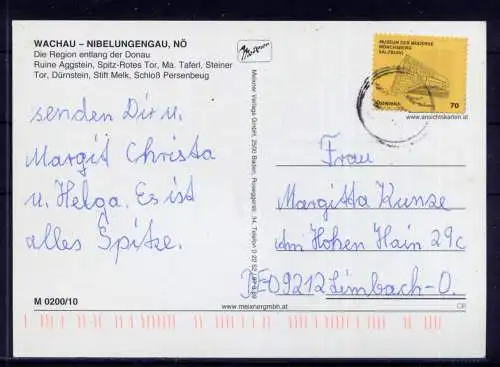 WACHAU – NIBELUNGENGAU, NÖ
Die Region entlang der Donau
Ruine Aggstein, Spitz-Rotes Tor, Ma. Taferl, Steiner
Tor, Dürnstein, Stift Melk, Schloß Persenbeug
senden Dir u.
Margit Christa
u. Helga. Es ist
alles Spitze.
M 0200/10
Meixner Verlags GmbH, 2500 Baden, Roseggerstr. 34, Telefon 0 22 52
www.meixnergmbh.at
MUSEUM DER MODERNE
MÖNCHSBERG
SALZBURG
Österreich
70
www.ansichtskarten.at
Frau
Margitta Kunze
Am Hohen Hain 29c
DE 09212 Limbach-O.